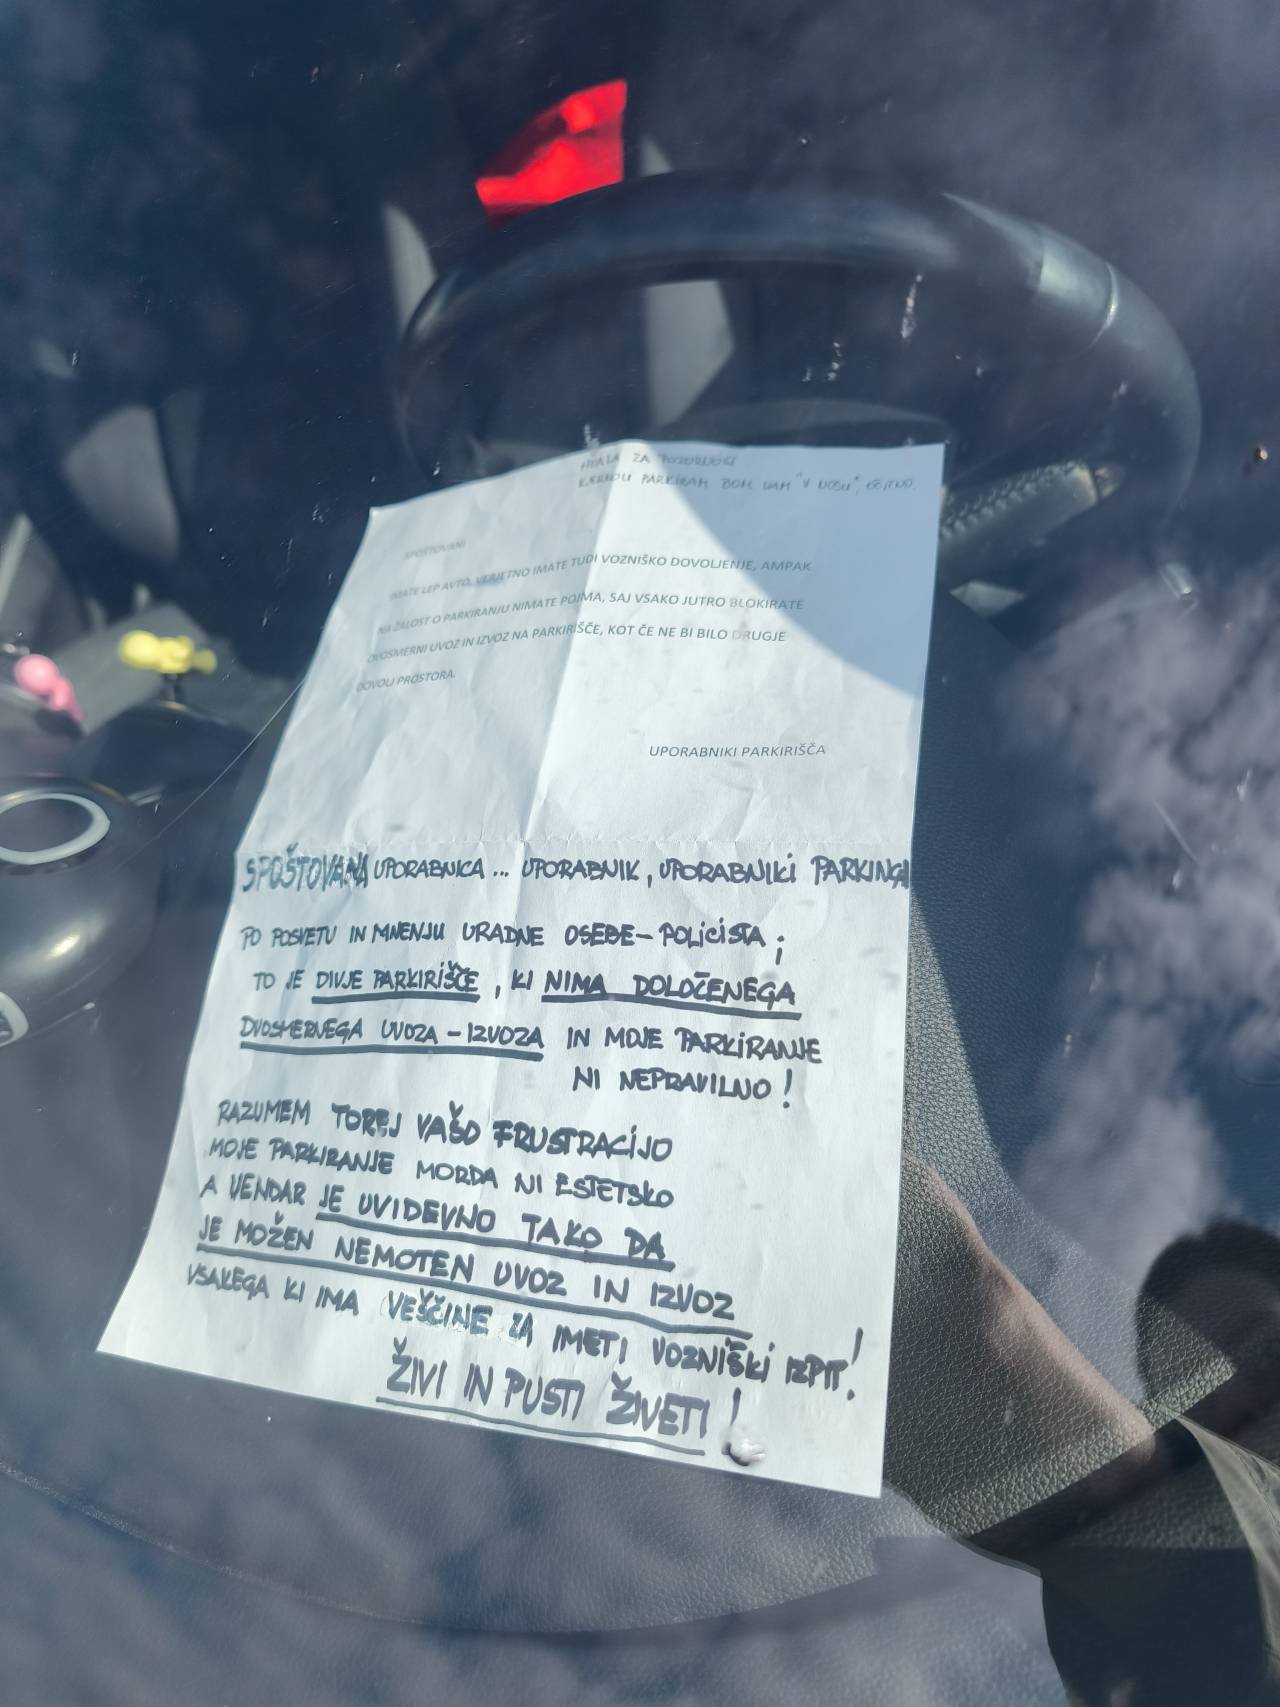 HVALA ZA POZORNOST
KJERKOLI PARKIRAM BOM VAM "V NOSU", OČITNO.
SPOŠTOVANI
IMATE LEP AVTO, VERJETNO IMATE TUDI VOZNIŠKO DOVOLJENJE, AMPAK
NA ŽALOST O PARKIRANJU NIMATE POJMA, SAJ VSAKO JUTRO BLOKIRATE
DVOSMERNI UVOZ IN IZVOZ NA PARKIRIŠČE, KOT ČE NE BI BILO DRUGJE
DOVOLJ PROSTORA.
UPORABNIKI PARKIRIŠČA
SPOŠTOVANA UPORABNICA... UPORABNIK, UPORABNIKI PARKINGA
PO POSVETU IN MNENJU URADNE OSEBE - POLICISTA ;
TO JE DIVJE PARKIRIŠČE, KI NIMA DOLOČENEGA
DVOSMERNEGA UVOZA - IZVOZA IN MOJE PARKIRANJE
NI NEPRAVILNO!
RAZUMEM TOREJ VAŠO FRUSTRACIJO
MOJE PARKIRANJE MORDA NI ESTETSKO
A VENDAR JE UVIDEVNO TAKO DA
JE MOŽEN NEMOTEN UVOZ IN IZVOZ
VSAKEGA KI IMA VEŠČINE ZA IMETI VOZNIŠKI IZPIT!
ŽIVI IN PUSTI ŽIVETI!